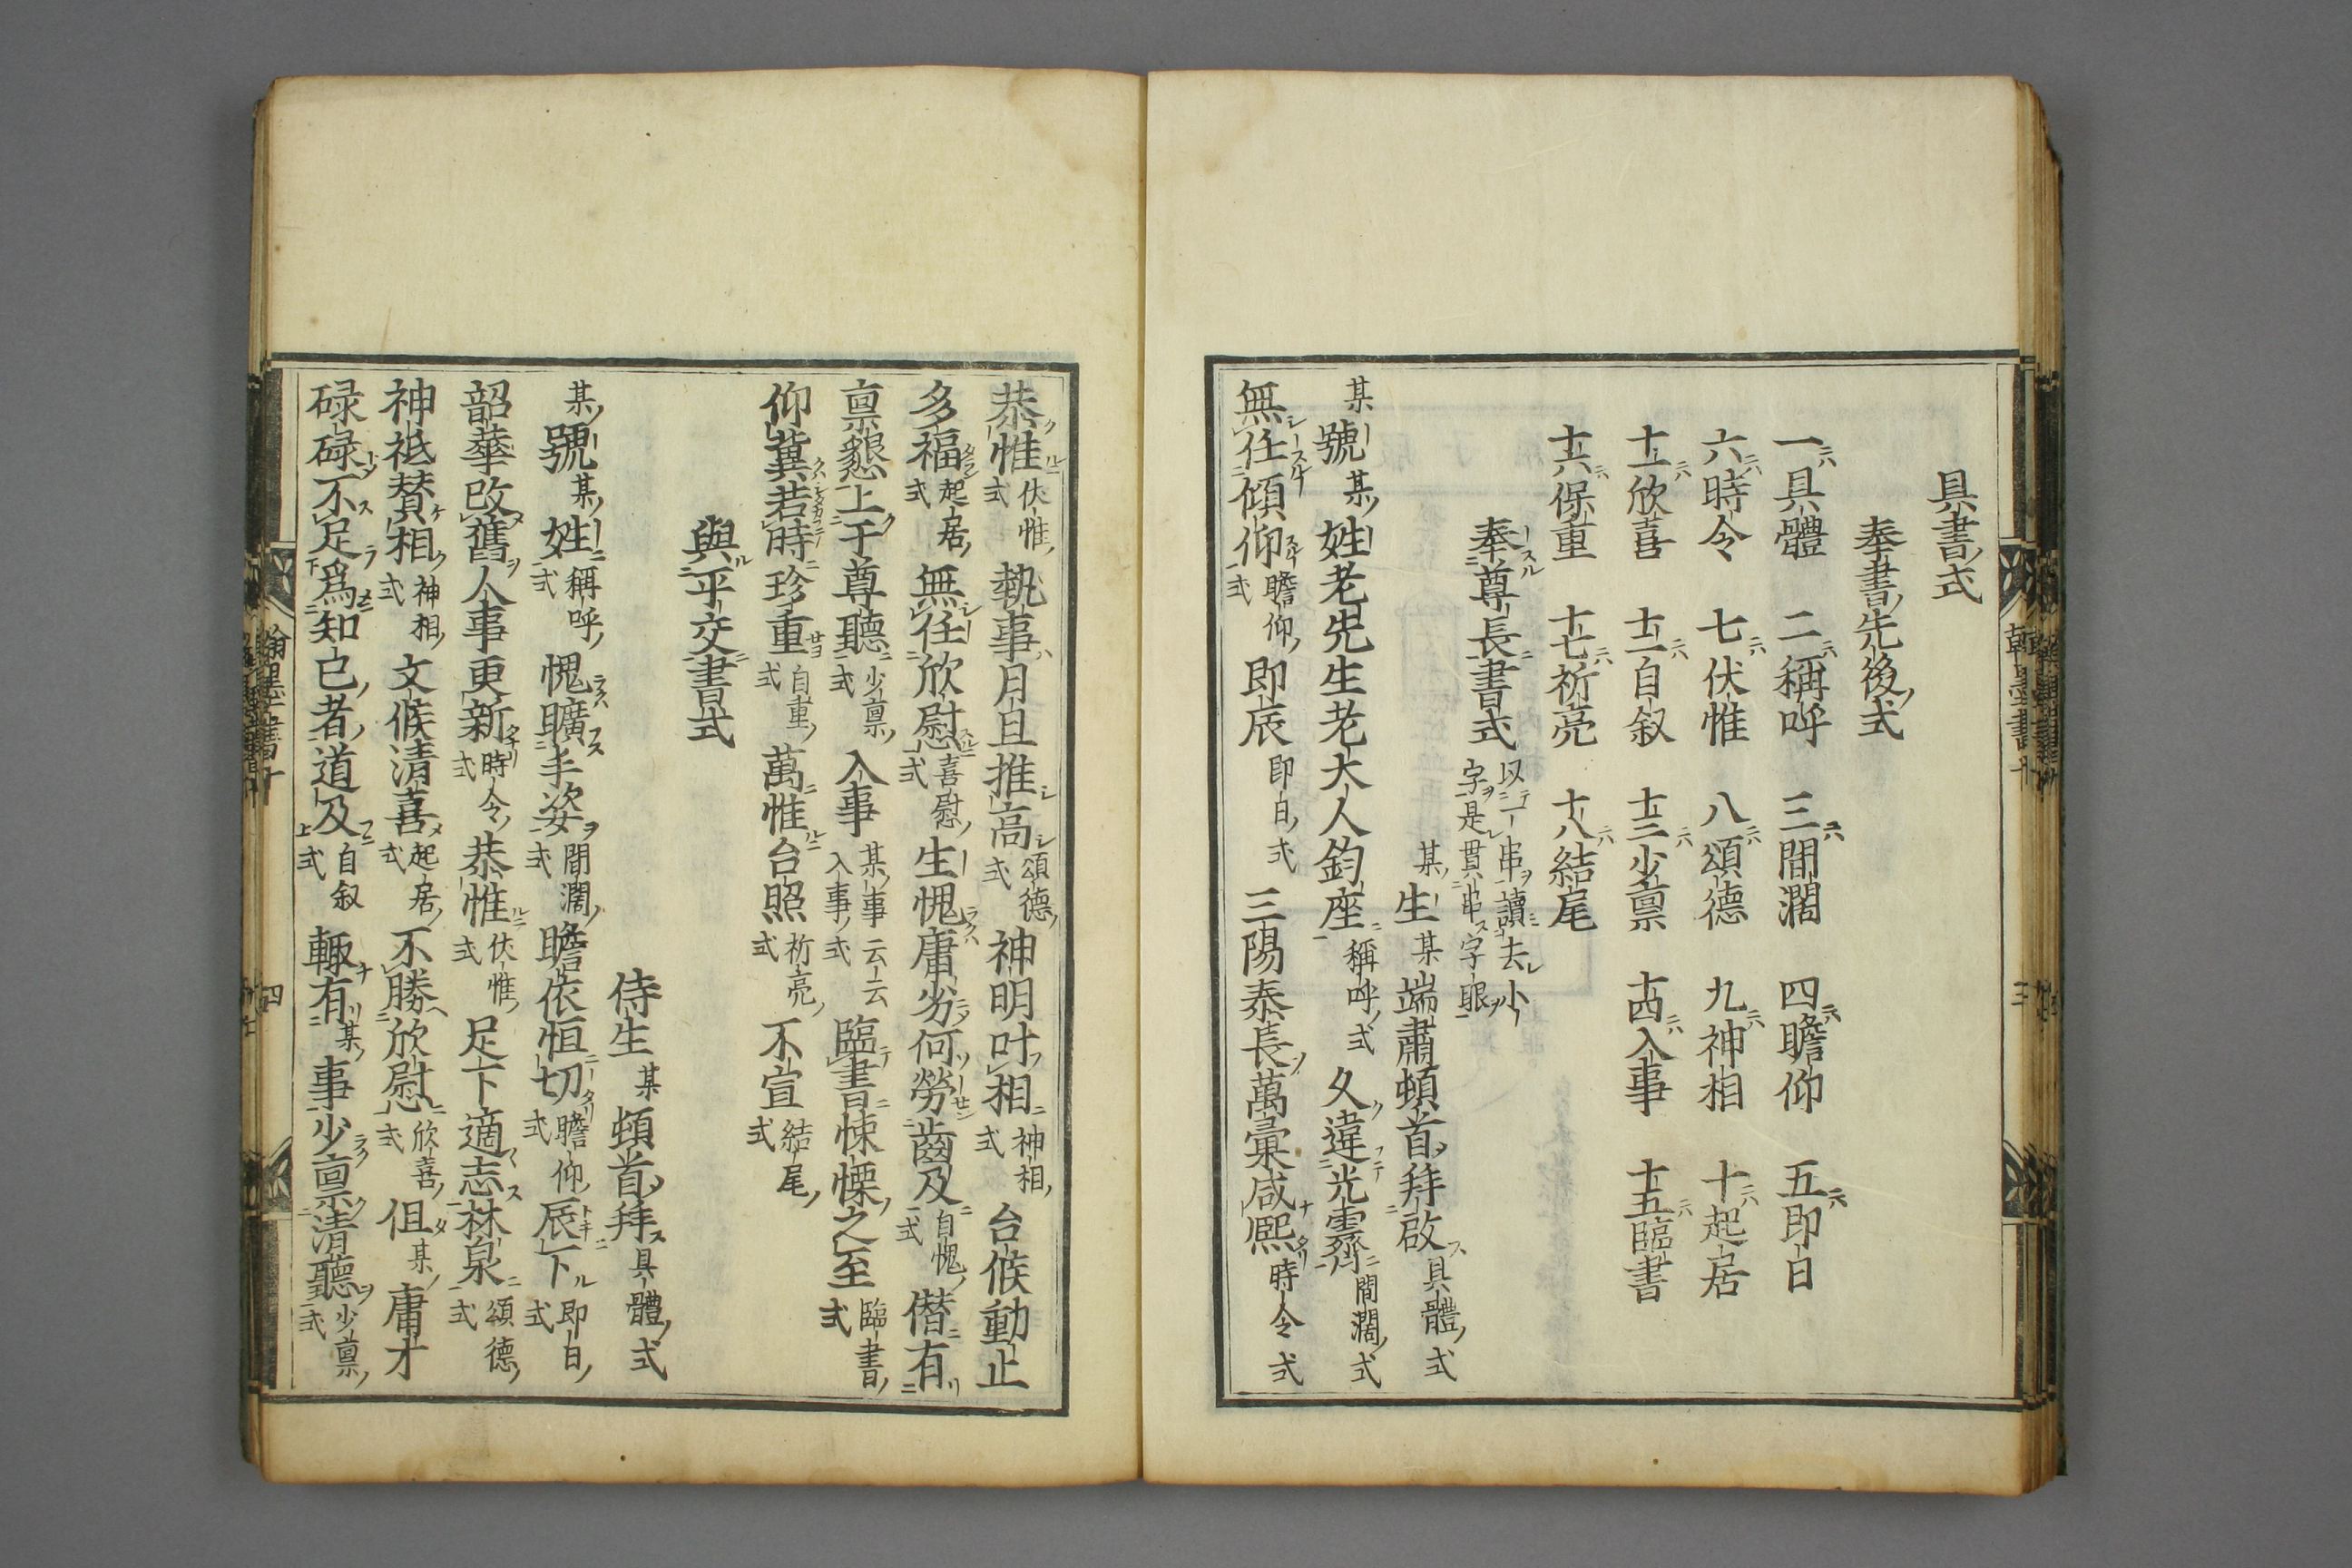 具書式
奉書先後式
一具體 二稱呼 三間濶 四瞻仰 五即日
六時令 七伏惟 八頌德 九神相 十起居
十一欣喜 十二自叙 十三少禀 十四入事 十五臨書
十六保重 十七祈亮 十八結尾
奉尊長書式 以一串讀去小字是貫串字眼
某生某端肅頓首拜啟 具體式
某號某姓老先生老大人鈞座 稱呼式 久違光霽 間濶式
無任傾仰 瞻仰式 即辰 即日式 三陽泰長萬彙咸熙 時令式
恭惟 伏惟式 執事月旦推高 頌德式 神明叶相 神相式 台候動止
多福 起居式 無任欣慰 喜慰式 生愧庸劣何勞齒及 自愧式 僭有
禀懇上干尊聽 少禀式 入事 某事云云入事式 臨書悚慄之至 臨書式
仰冀若時珍重 自重式 萬惟台照 祈亮式 不宣 結尾式
與平交書式
侍生某頓首拜 具體式
某號某姓 稱呼式 愧曠丰姿 間濶式 瞻依恒切 瞻仰式 辰下 即日式
韶華改舊人事更新 時令式 恭惟 伏惟式 足下適志林泉 頌德式
神祗賛相 神相式 文候清喜 起居式 不勝欣慰 欣喜式 但某庸才
碌碌不足爲知已者道及 自叙式 輙有某事少禀清聽 少禀式
翰墨書十
四